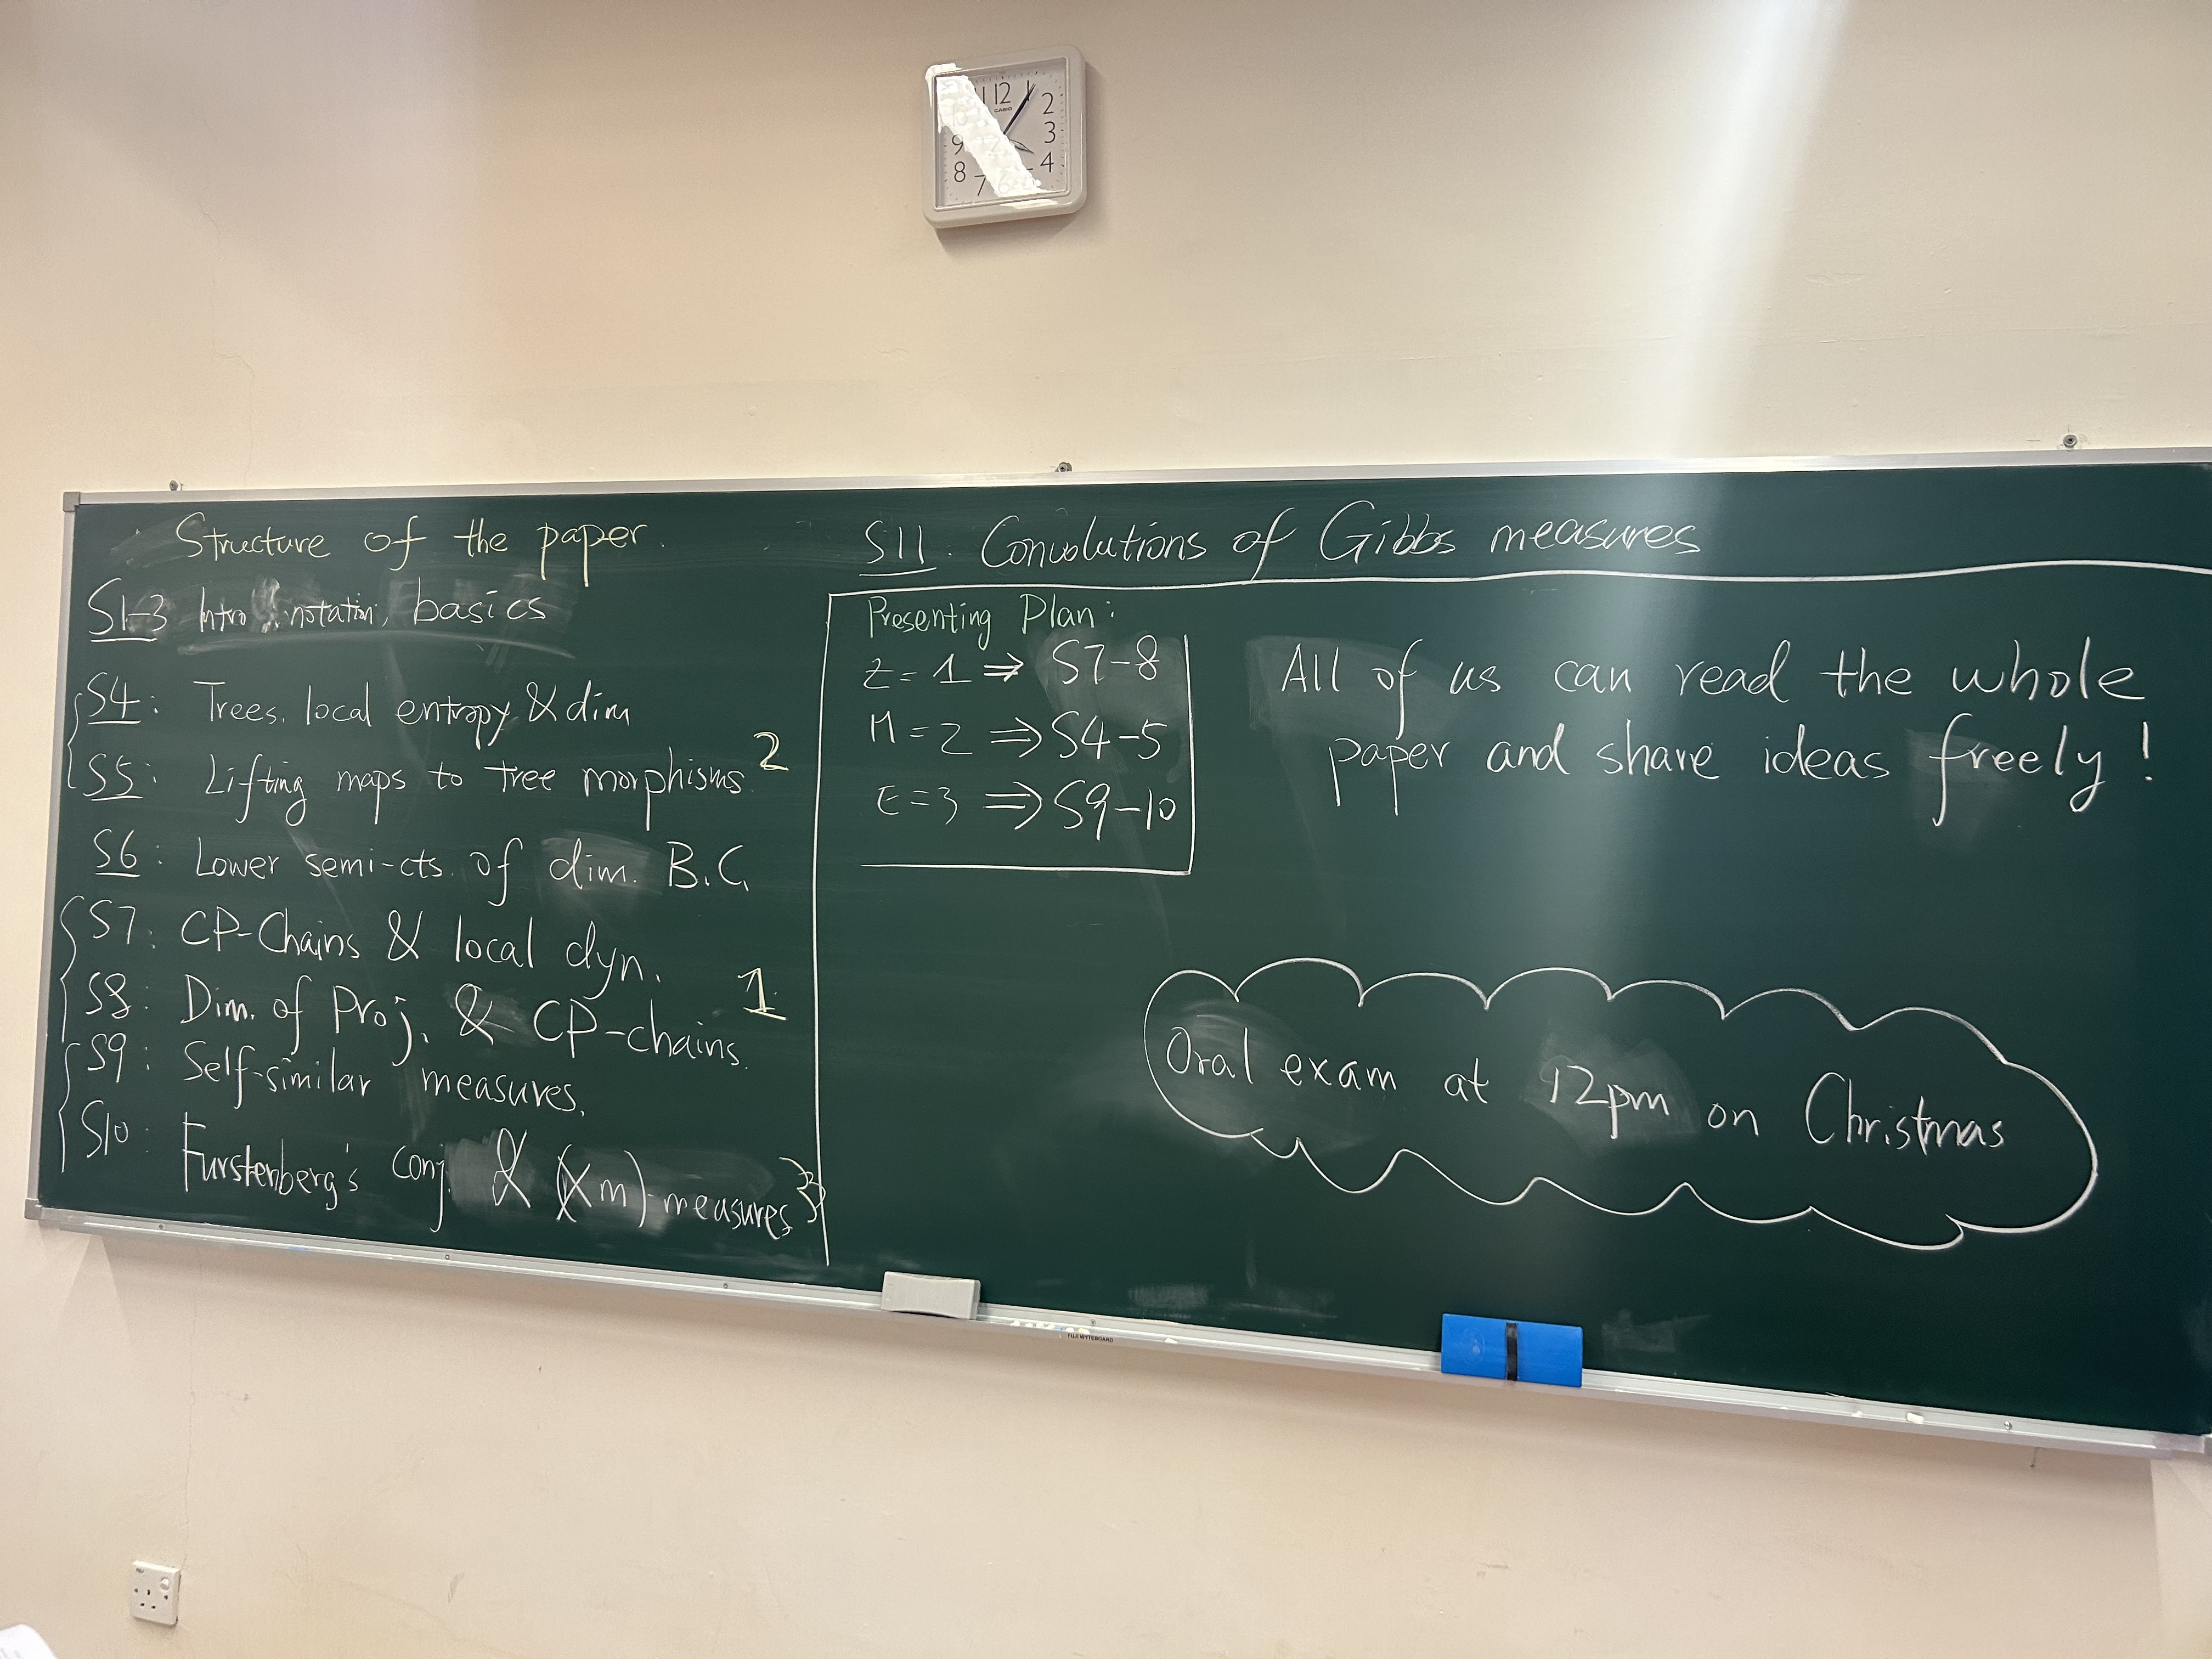 12
2
3
4
7
8
9
CASIO
Structure of the paper.
S1-3 Intro, notation, basics
S4: Trees, local entropy & dim
S5: Lifting maps to tree morphisms 2
S6: Lower semi-cts. of dim. B.C.
S7: CP-Chains & local dyn.
S8: Dim. of Proj. & CP-chains. 1
S9: Self-similar measures.
S10: Furstenberg's conj. & (×m)-measures } 3
S11. Convolutions of Gibbs measures
Presenting Plan:
Z = 1 ⇒ S7-8
M = 2 ⇒ S4-5
E = 3 ⇒ S9-10
All of us can read the whole
paper and share ideas freely!
Oral exam at 12pm on Christmas
FUJI WYTEBOARD